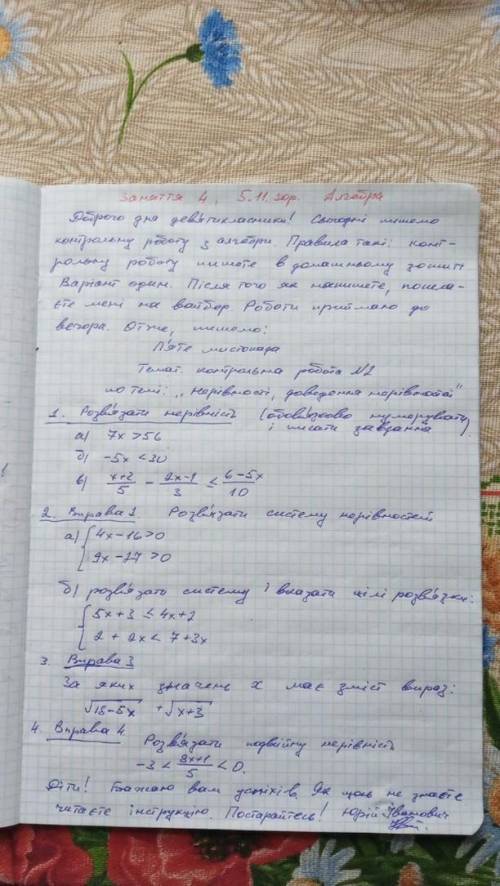 Заняття 4, 5.11.22р. Алгебра
Доброго дня дев'ятикласники! Сьогодні пишемо
контрольну роботу з алгебри. Правила такі: конт-
рольну роботу пишете в домашньому зошиті
Варіант один. Після того як напишете, посила-
єте мені на вайбер. Роботи приймаю до
вечора. Отже, пишемо:
П'яте листопада
Темат. контрольна робота №1
по темі: „Нерівності, доведення нерівностей"
1. Розв'язати нерівність (обов'язково нумерувати
і писати завдання)
а) 7x > 56
б) -5x < 30
в) x+2/5 - 2x-1/3 ≤ 6-5x/10
2. Вправа 2 Розв'язати систему нерівностей
а) { 4x-16>0
9x-27>0
б) розв'язати систему і вказати цілі розв'язки:
{ 5x+3 ≤ 4x+2
2+2x < 7+3x
3. Вправа 3
За яких значень x має зміст вираз:
√15-5x + √x+3
4. Вправа 4
Розв'язати подвійну нерівність
-3 < 3x+1/5 < 0.
Діти! Бажаю вам успіхів. Як щось не знаєте
читаєте інструкцію. Постарайтесь! Юрій Іванович